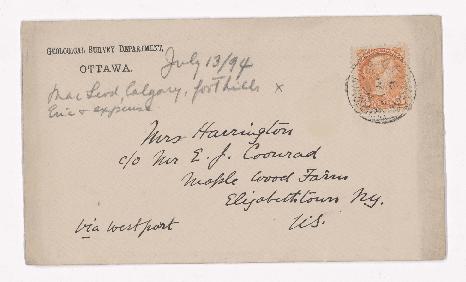 GEOLOGICAL SURVEY DEPARTMENT,
OTTAWA.
July 13/94
MacLeod Calgary, foothills x
Eric & expense
Mrs Harrington
c/o Mr E. J. Coonrad
Maple Wood Farm
Elizabethtown Ny.
U.S.
via Westport